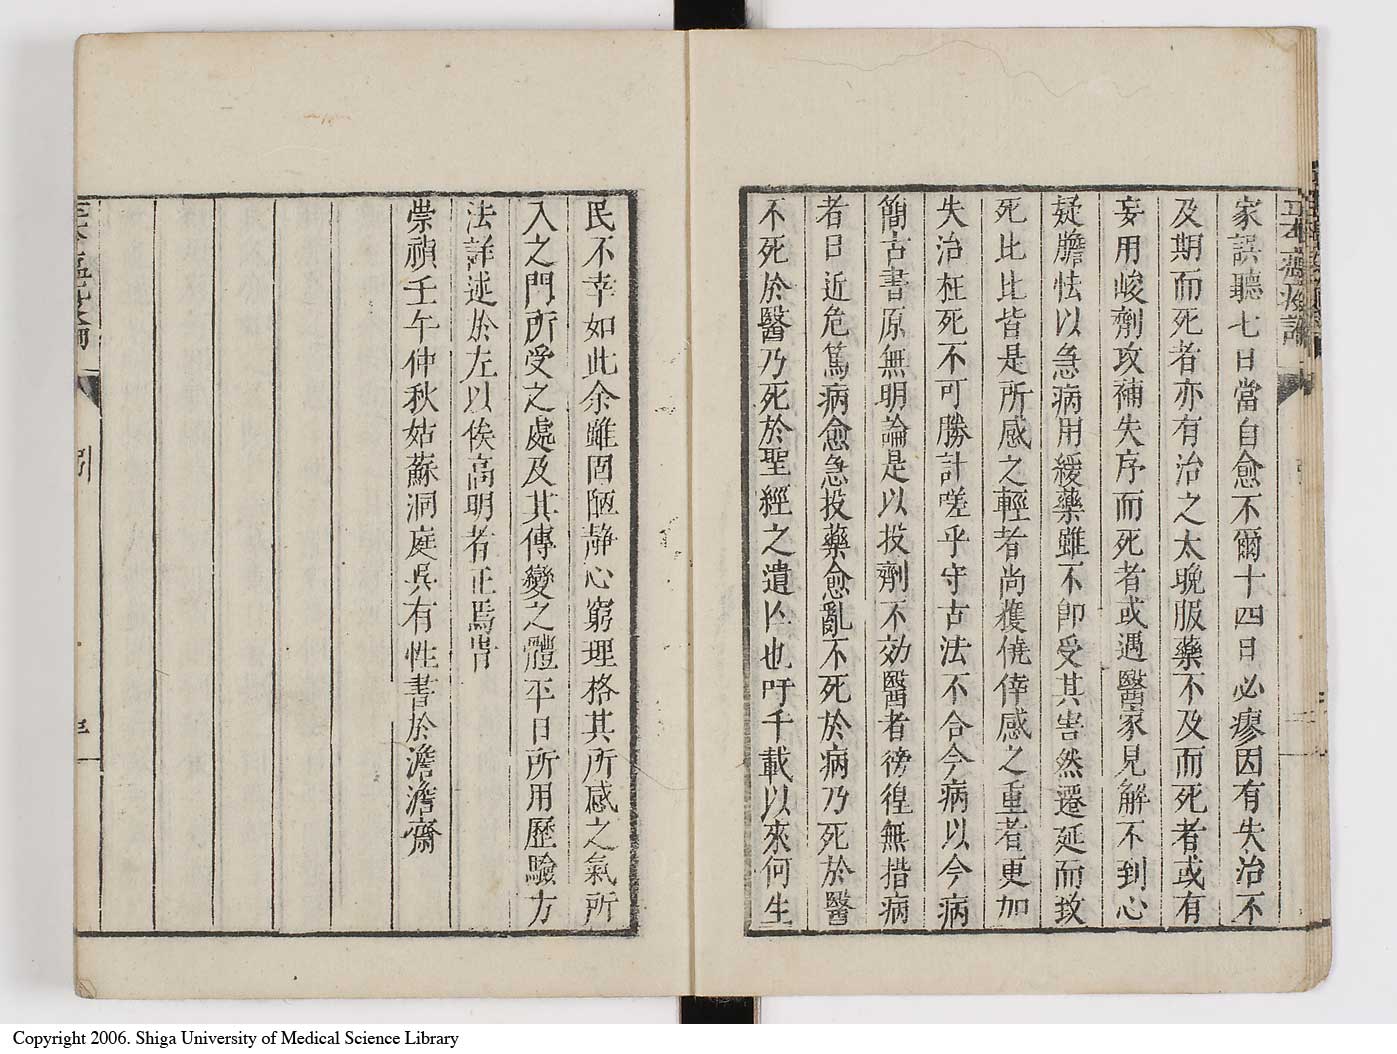 家誤聽七日當自愈不爾十四日必瘳因有失治不
及期而死者亦有治之太晚服藥不及而死者或有
妄用峻劑攻補失序而死者或遇醫家見解不到心
疑膽怯以急病用緩藥雖不卽受其害然遷延而致
死比比皆是所感之輕者尚獲僥倖感之重者更加
失治枉死不可勝計嗟乎守古法不合今病以今病
簡古書原無明論是以投劑不効醫者徬徨無措病
者日近危篤病愈急投藥愈亂不死於病乃死於醫
不死於醫乃死於聖經之遺亾也吁千載以來何生
民不幸如此余雖固陋靜心窮理格其所感之氣所
入之門所受之處及其傳變之體平日所用歷驗方
法詳述於左以俟高明者正焉旹
崇禎壬午仲秋姑蘇洞庭吳有性書於澹澹齋
引
Copyright 2006. Shiga University of Medical Science Library